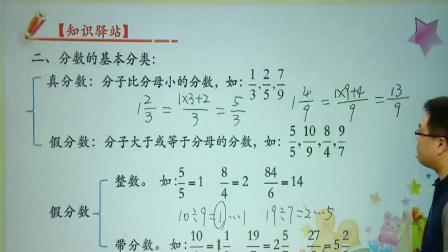 【知识驿站】
二、分数的基本分类:
真分数:分子比分母小的分数,如: 1/3, 2/5, 7/9
1 2/3 = (1×3+2)/3 = 5/3 1 4/9 = (1×9+4)/9 = 13/9
假分数:分子大于或等于分母的分数,如: 5/5, 10/9, 8/4, 9/7
整数。如: 5/5 = 1 8/4 = 2 84/6 = 14
假分数
10÷9=1…1 19÷7=2…5
带分数。如: 10/ =1 1/ 19/ =2 5/ 27/ =5 2/